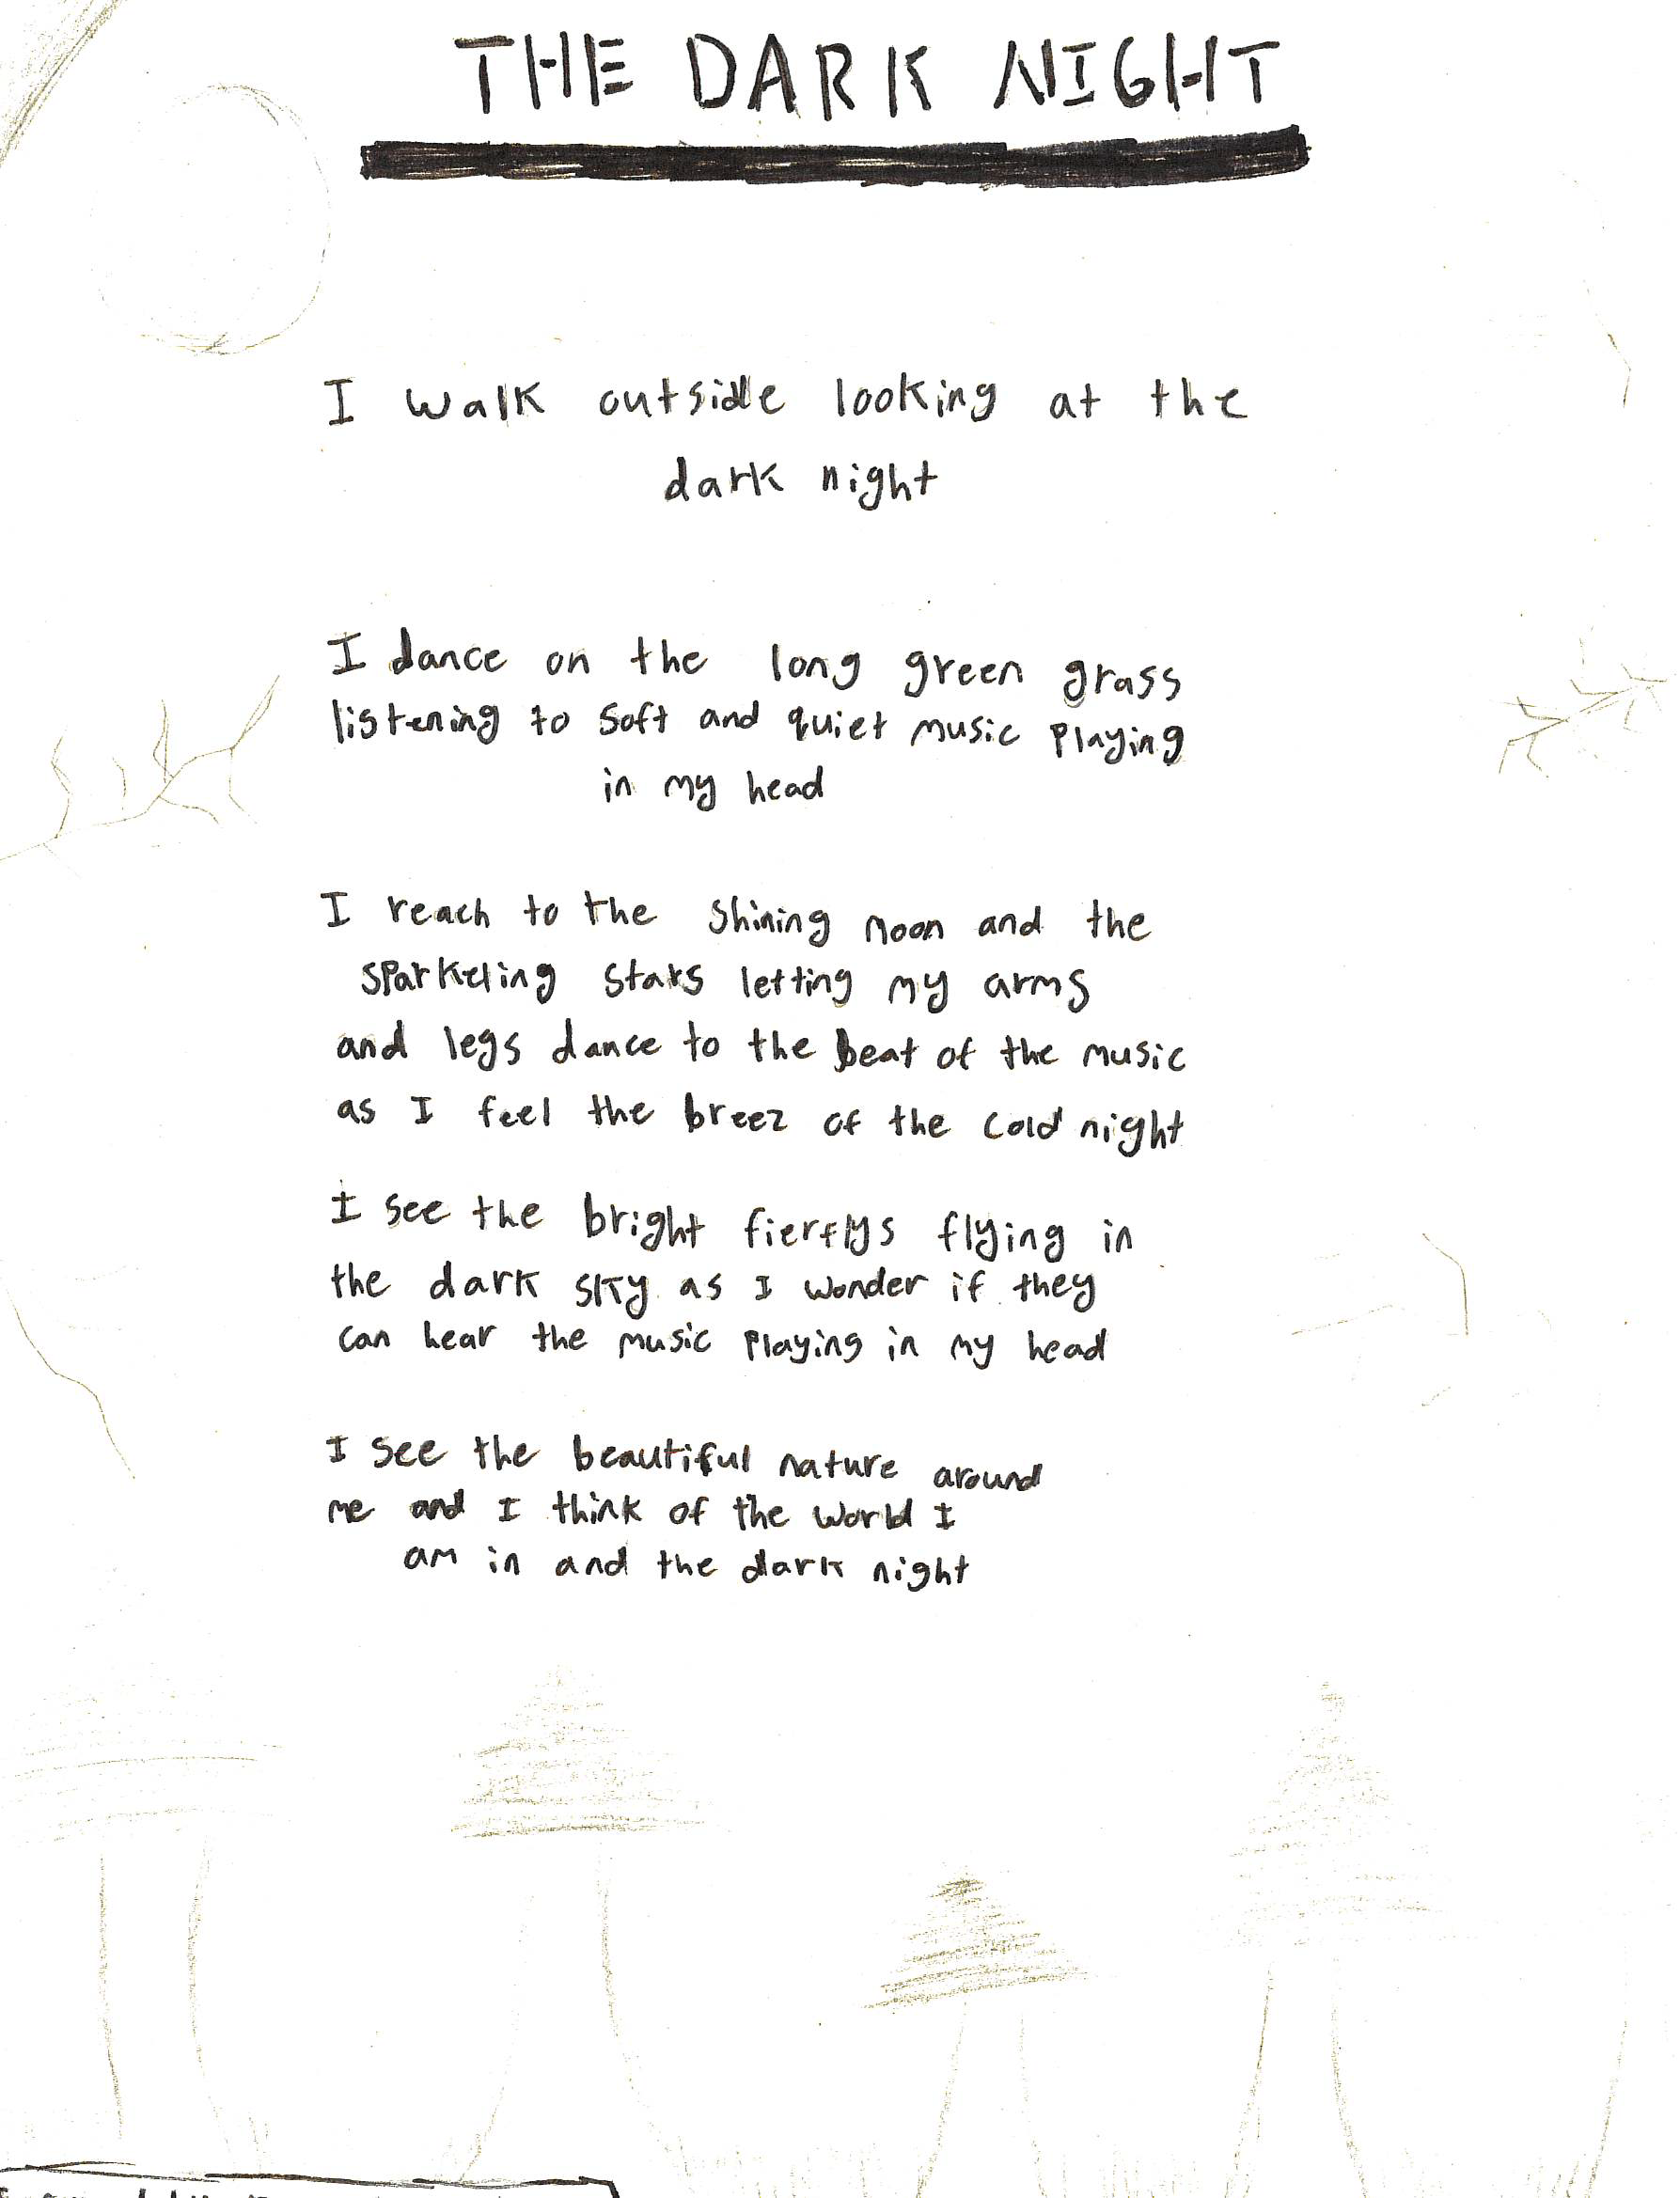 THE DARK NIGHT
I walk outside looking at the
dark night
I dance on the long green grass
listening to soft and quiet music playing
in my head
I reach to the shining moon and the
sparkeling stars letting my arms
and legs dance to the beat of the music
as I feel the breez of the cold night
I see the bright fierflys flying in
the dark sky as I wonder if they
can hear the music playing in my head
I see the beautiful nature around
me and I think of the world I
am in and the dark night